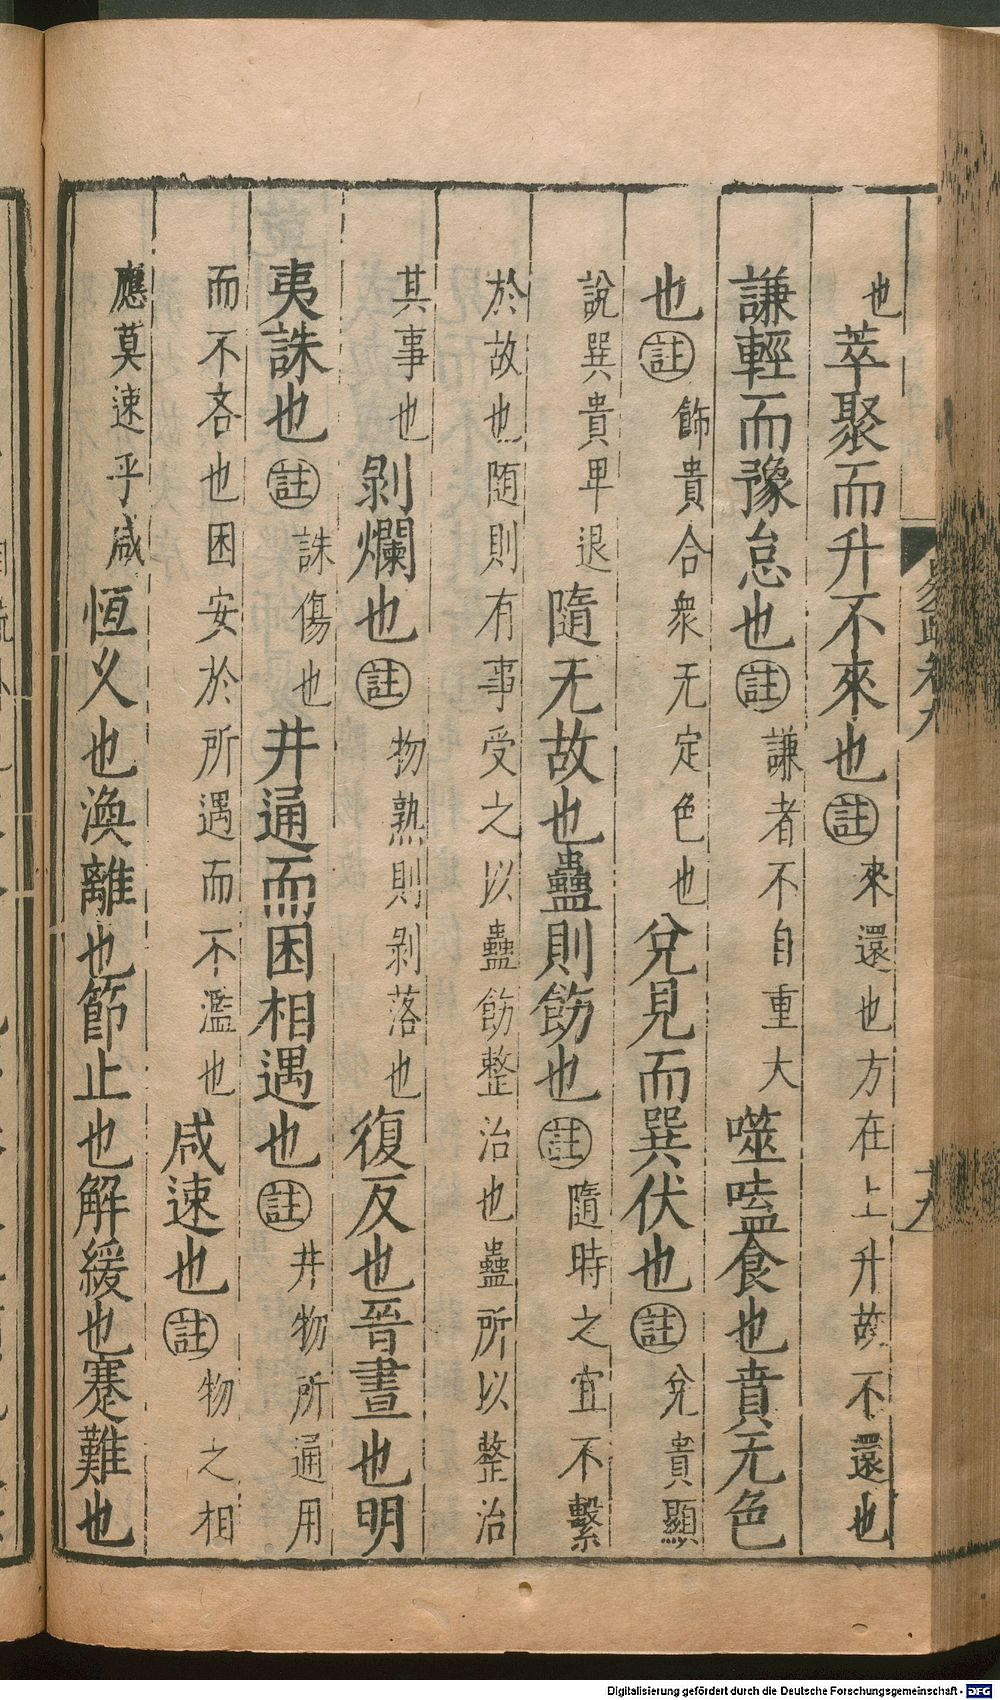 易疏卷九
十九
也萃聚而升不來也註來還也方在上升故不還也
謙輕而豫怠也註謙者不自重大噬嗑食也賁无色
也註飾貴合衆无定色也兌見而巽伏也註兌貴顯
說巽貴卑退隨无故也蠱則飭也註隨時之宜不繫
於故也随則有事受之以蠱飭整治也蠱所以整治
其事也剝爛也註物熟則剝落也復反也晉晝也明
夷誅也註誅傷也井通而困相遇也註井物所通用
而不吝也困安於所遇而不濫也咸速也註物之相
應莫速乎咸恒乆也渙離也節止也解緩也蹇難也
Digitalisierung gefördert durch die Deutsche Forschungsgemeinschaft - DFG